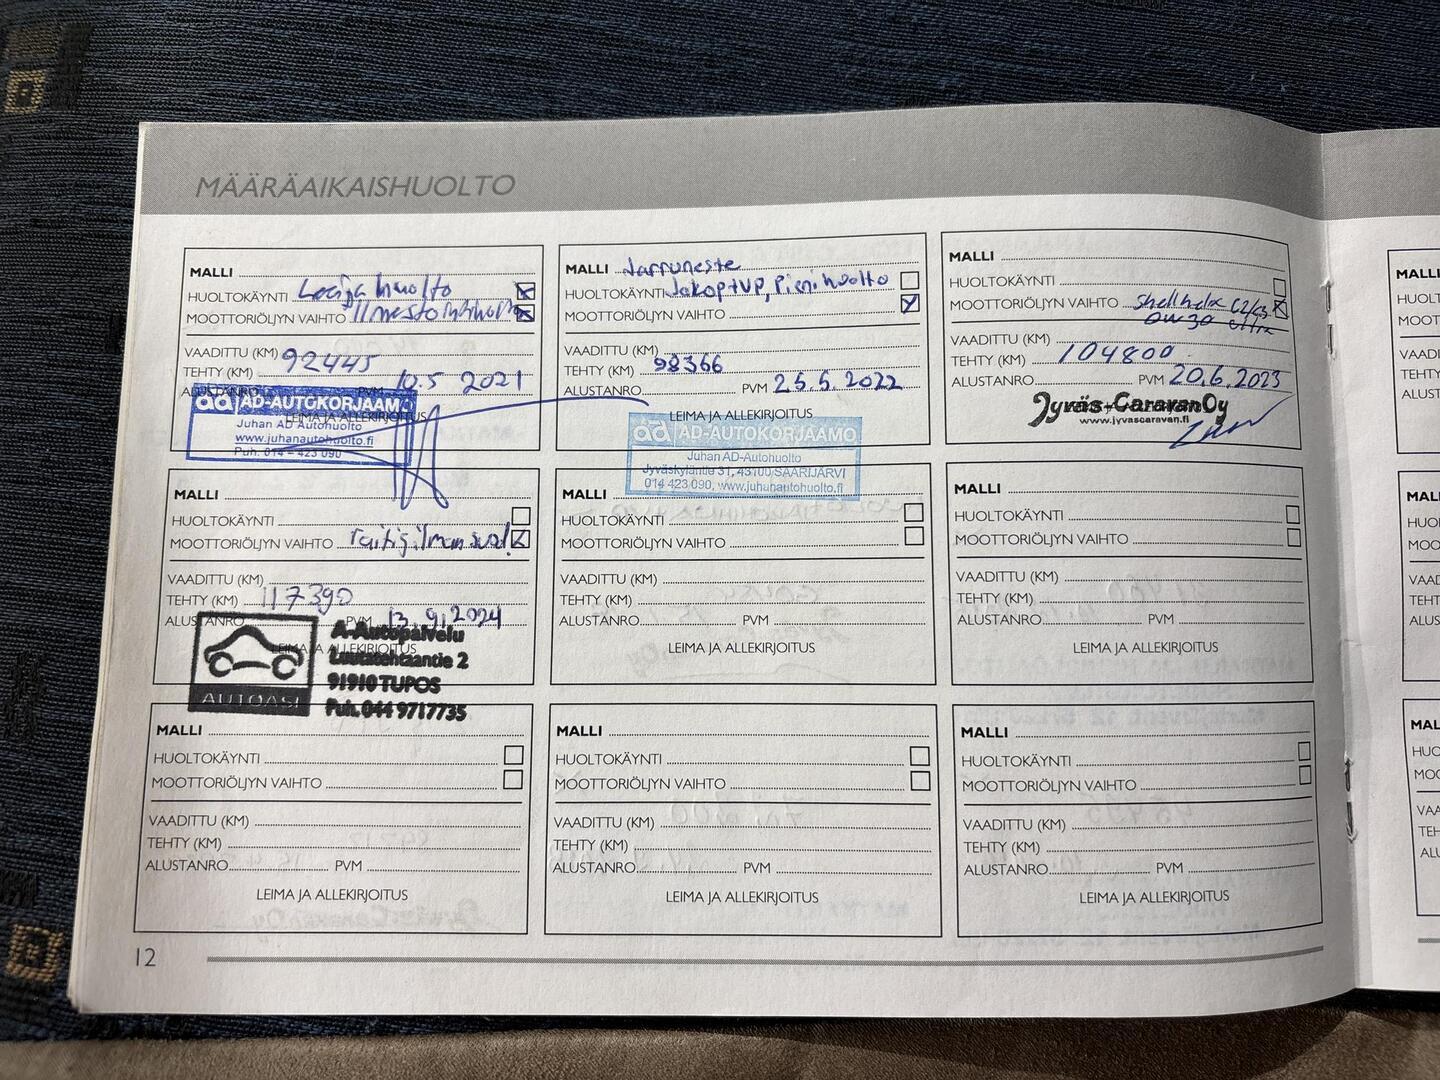 MÄÄRÄAIKAISHUOLTO
MALLI
HUOLTOKÄYNTI Laaja huolto
MOOTTORIÖLJYN VAIHTO
VAADITTU (KM)
TEHTY (KM) 92445
ALUSTANRO PVM 10.5 2021
LEIMA JA ALLEKIRJOITUS
ad AD-AUTOKORJAAMO
Juhan AD-Autohuolto
www.juhanautohuolto.fi
Puh. 014 - 423 090
MALLI Jarruneste
HUOLTOKÄYNTI Jakopty P, Pieni huolto
MOOTTORIÖLJYN VAIHTO
VAADITTU (KM)
TEHTY (KM) 98366
ALUSTANRO PVM 25.5.2022
LEIMA JA ALLEKIRJOITUS
ad AD-AUTOKORJAAMO
Juhan AD-Autohuolto
Jyväskyläntie 31, 43100 SAARIJÄRVI
014 423 090, www.juhanautohuolto.fi
MALLI
HUOLTOKÄYNTI
MOOTTORIÖLJYN VAIHTO Shell helix C2/C3
0W30 ultra
VAADITTU (KM)
TEHTY (KM) 104800
ALUSTANRO PVM 20.6.2023
Jyväs-Caravan Oy
www.jyvascaravan.fi
MALLI
HUOLTOKÄYNTI
MOOTTORIÖLJYN VAIHTO raitisilmansuod
VAADITTU (KM)
TEHTY (KM) 117390
ALUSTANRO PVM 13.9.2024
LEIMA JA ALLEKIRJOITUS
AUTOASI
A-Autopalvelu
Luutatehtaantie 2
91910 TUPOS
Puh. 044 9717735
MALLI
HUOLTOKÄYNTI
MOOTTORIÖLJYN VAIHTO
VAADITTU (KM)
TEHTY (KM)
ALUSTANRO PVM
LEIMA JA ALLEKIRJOITUS
MALLI
HUOLTOKÄYNTI
MOOTTORIÖLJYN VAIHTO
VAADITTU (KM)
TEHTY (KM)
ALUSTANRO PVM
LEIMA JA ALLEKIRJOITUS
MALLI
HUOLTOKÄYNTI
MOOTTORIÖLJYN VAIHTO
VAADITTU (KM)
TEHTY (KM)
ALUSTANRO PVM
LEIMA JA ALLEKIRJOITUS
MALLI
HUOLTOKÄYNTI
MOOTTORIÖLJYN VAIHTO
VAADITTU (KM)
TEHTY (KM)
ALUSTANRO PVM
LEIMA JA ALLEKIRJOITUS
MALLI
HUOLTOKÄYNTI
MOOTTORIÖLJYN VAIHTO
VAADITTU (KM)
TEHTY (KM)
ALUSTANRO PVM
LEIMA JA ALLEKIRJOITUS
12